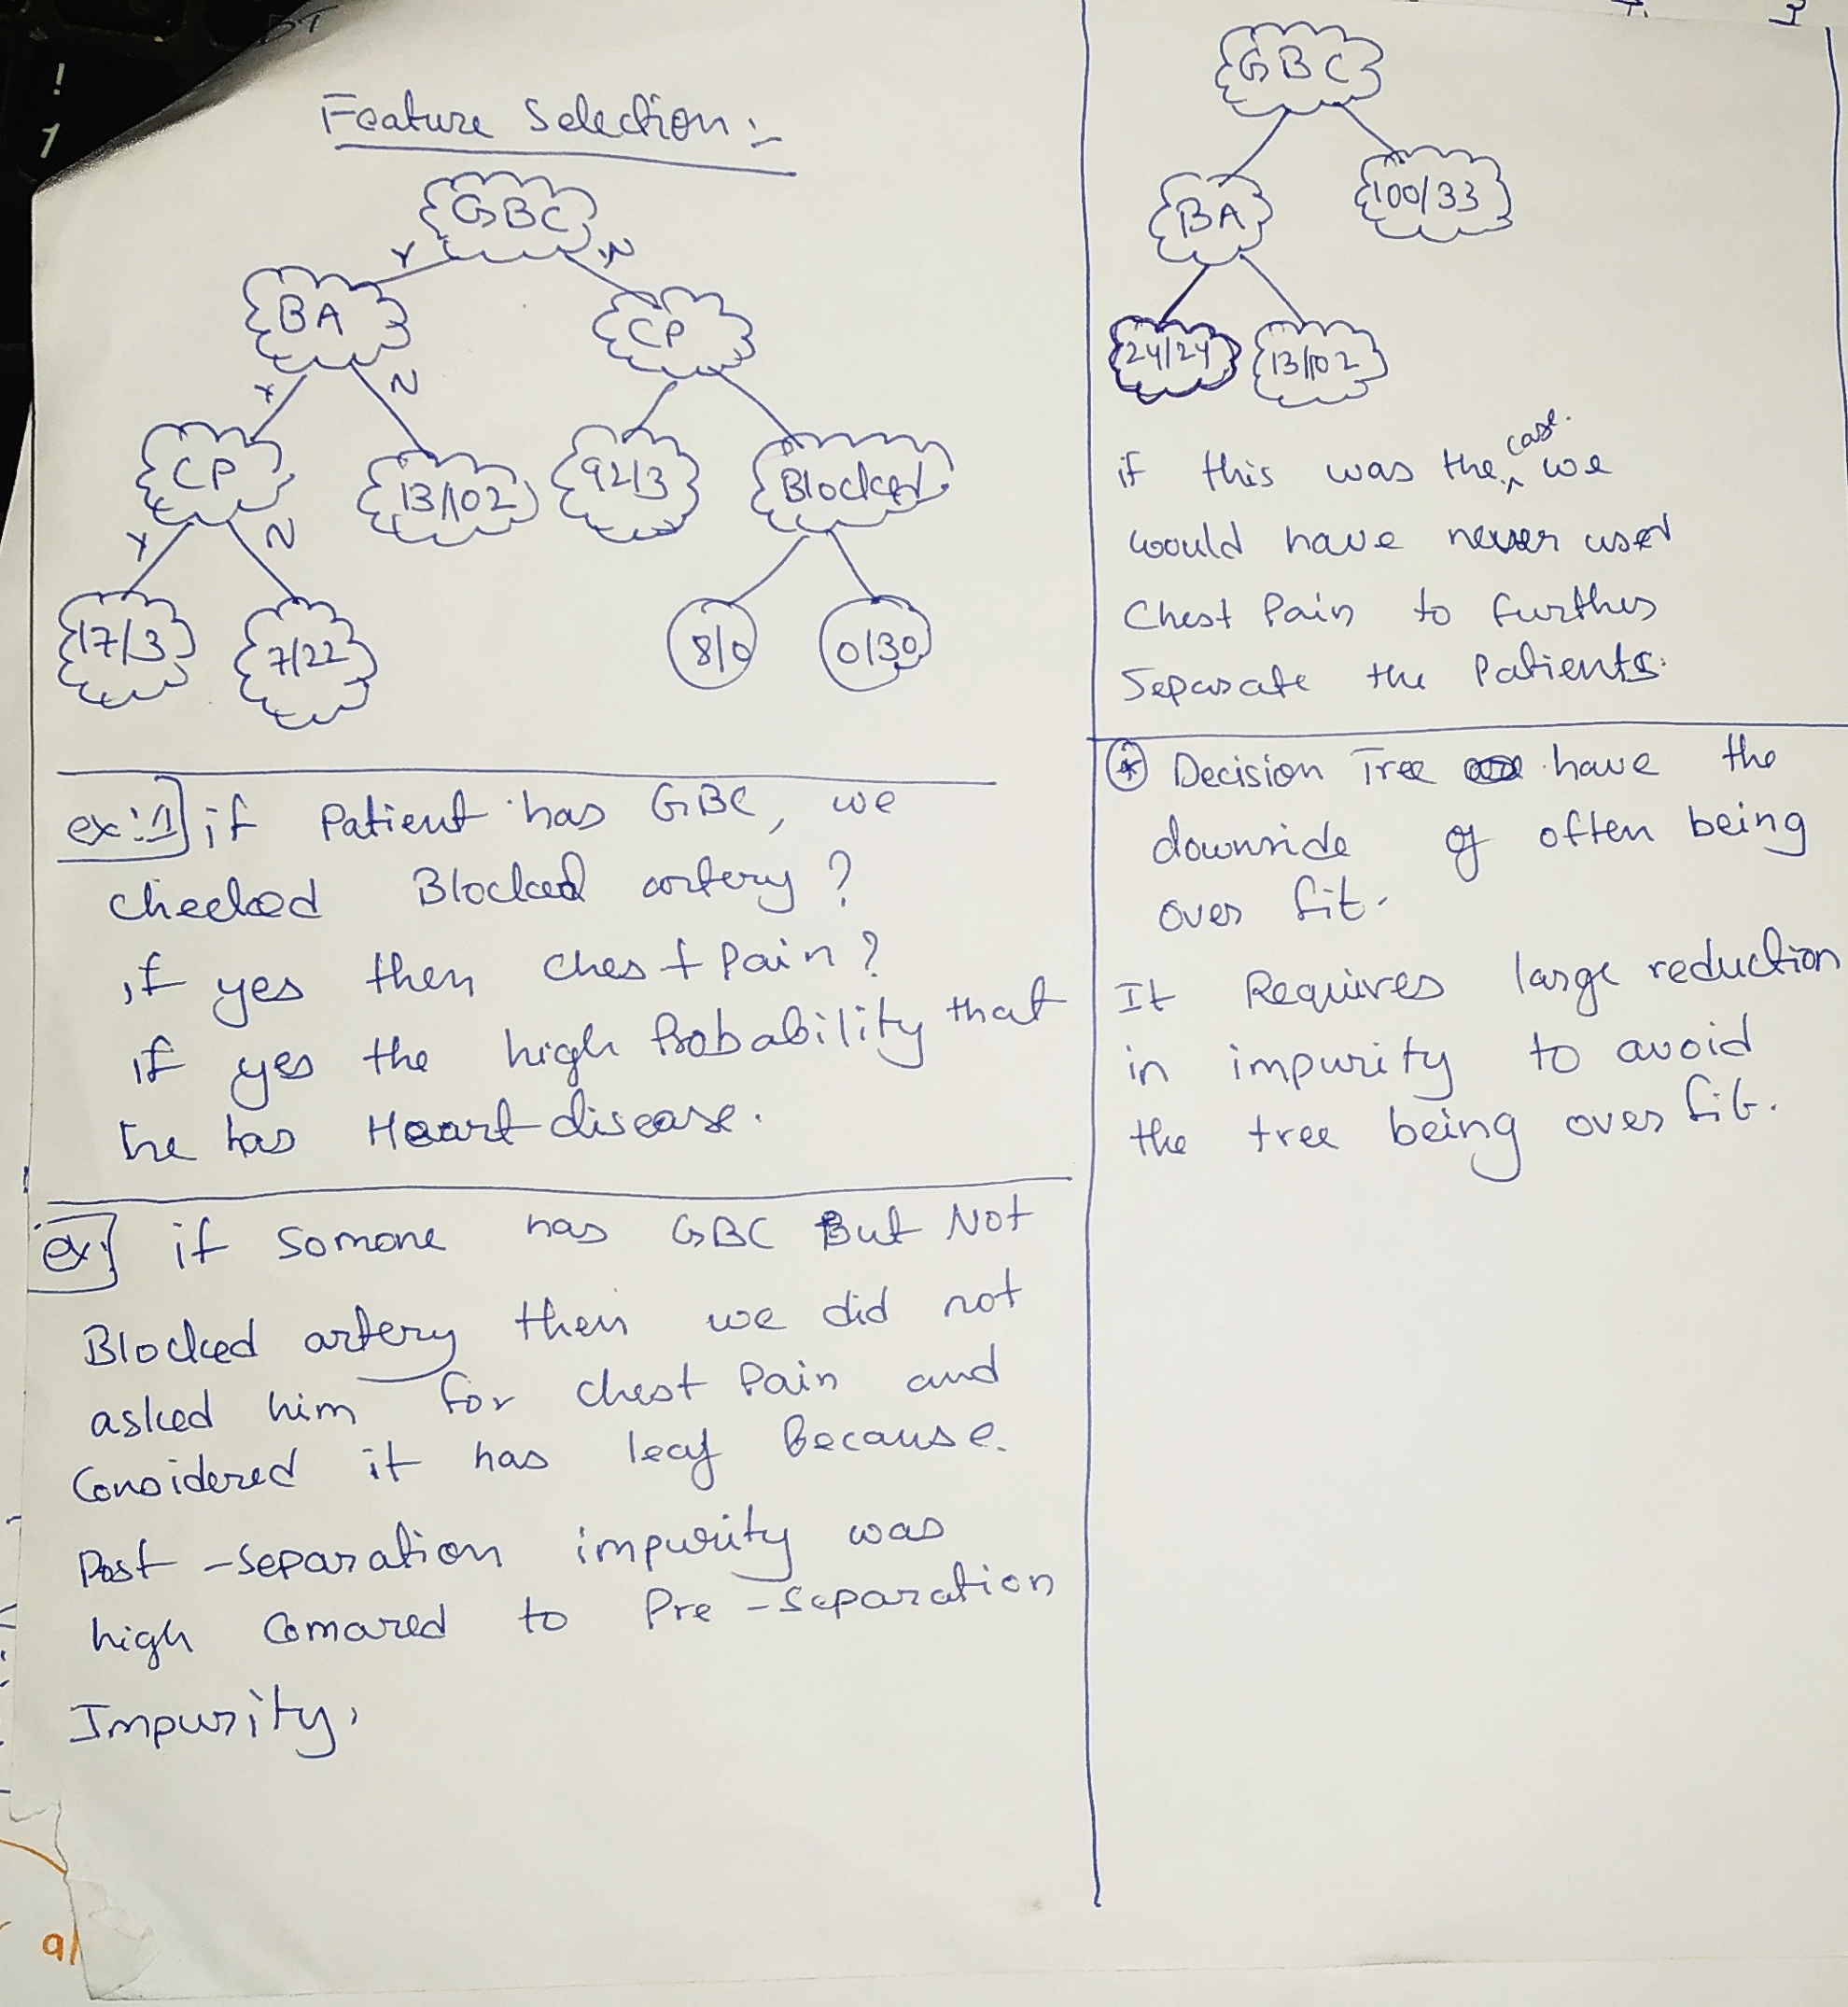 Feature Selection :-
GBC
Y
N
BA
CP
Y
N
CP
13/102
92/3
Blocked
Y
N
17/3
7/22
8/0
0/30
ex:1] if Patient has GBC, we
checked Blocked artery ?
if yes then chest Pain ?
if yes the high Probability that
he has Heart disease.
ex:] if Somone has GBC But Not
Blocked artery then we did not
asked him for chest Pain and
Considered it has leaf Because.
Post - Separation impurity was
high Comared to Pre - Separation
Impurity.
GBC
BA
100/33
24/24
13/102
if this was the case. we
would have never used
Chest Pain to further
Separate the Patients.
* Decision Tree have the
downside of often being
over fit.
It Requires large reduction
in impurity to avoid
the tree being over fit.
!
1
9